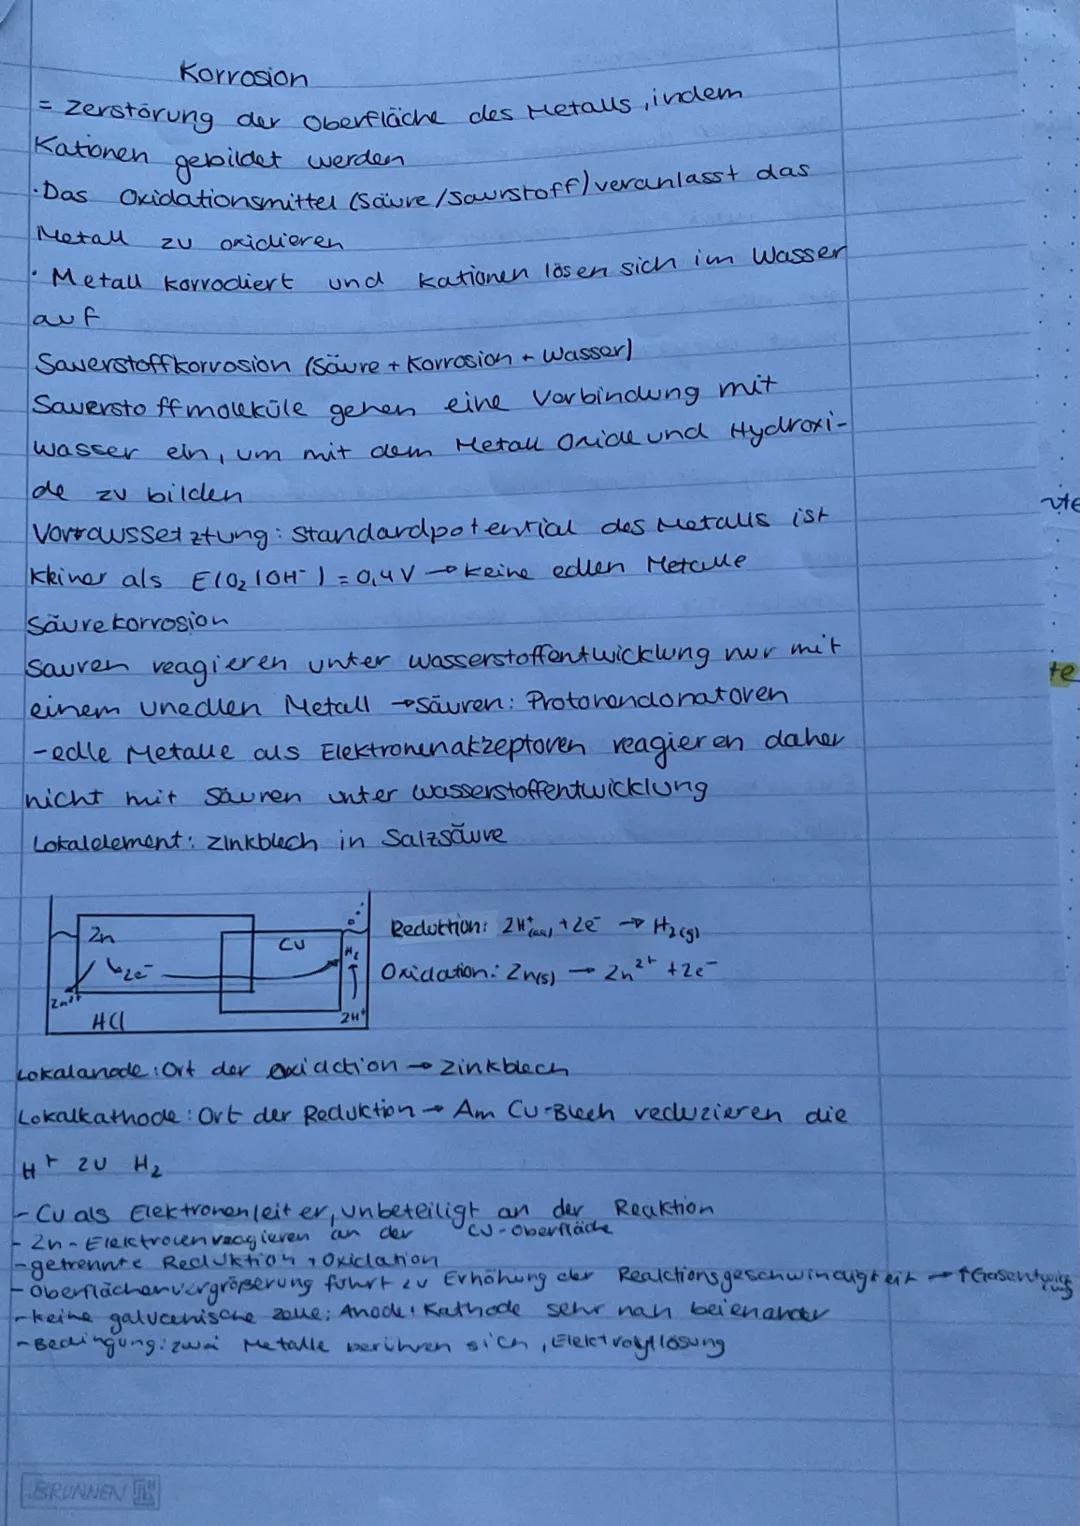 Korrosion
= Zerstörung der Oberfläche des Metalls, indem
Kationen gebildet werden
·Das Oxidationsmittel (Säure/Saurstoff) veranlasst das
Metall zu oxidieren
· Metall korrodiert und Kationen lösen sich im Wasser
auf
Sauerstoffkorrosion (Säure + Korrosion + Wasser)
Sauerstoffmoleküle gehen eine Verbindung mit
Wasser ein, um mit dem Metall Oxide und Hydroxi-
de zu bilden
Vorraussetztung: Standardpotential des Metalls ist
kleiner als E(O₂/OH⁻) = 0,4V → keine edlen Metalle
Säurekorrosion
Säuren reagieren unter Wasserstoffentwicklung nur mit
einem unedlen Metall → Säuren: Protonendonatoren
-edle Metalle als Elektronenakzeptoren reagieren daher
nicht mit Säuren unter Wasserstoffentwicklung
Lokalelement: Zinkblech in Salzsäure
Zn
Cu
2e⁻
H₂
Zn²⁺
HCl
2H⁺
Reduktion: 2H⁺(aq) + 2e⁻ → H₂(g)
Oxidation: Zn(s) → Zn²⁺ + 2e⁻
Lokalanode: Ort der Oxidaction → Zinkblech
Lokalkathode: Ort der Reduktion → Am Cu-Blech reduzieren die
H⁺ zu H₂
- Cu als Elektronenleiter, unbeteiligt an der Reaktion
- Zn-Elektronen reagieren an der Cu-Oberfläche
- getrennte Reduktion + Oxidation
- Oberflächenvergrößerung führt zu Erhöhung der Reaktionsgeschwindigkeit → ↑Gasentwicklung
- keine galvanische Zelle: Anode + Kathode sehr nah beienander
- Bedingung: zwei Metalle berühren sich, Elektrolytlösung
BRUNNEN
te